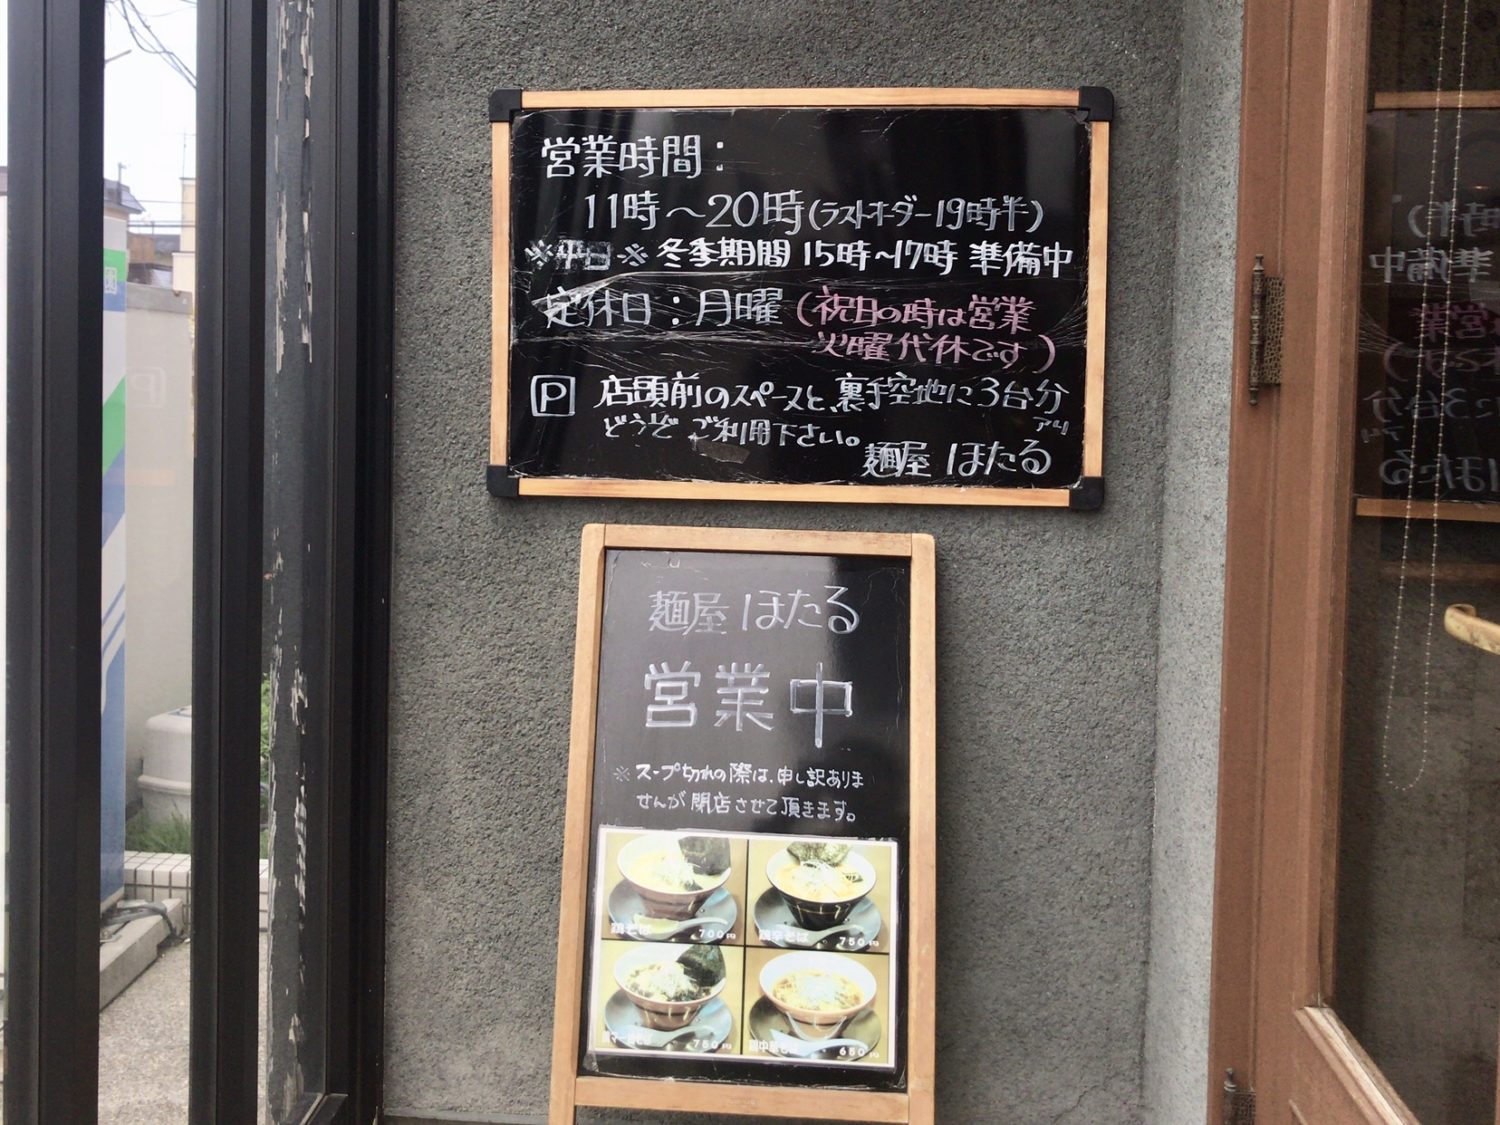 営業時間:
11時～20時(ラストオーダー19時半)
※平日※ 冬季期間 15時～17時 準備中
定休日:月曜(祝日の時は営業
火曜代休です)
P 店頭前のスペースと、裏手空地に3台分
アリ
どうぞ ご利用下さい。
麺屋 ほたる
麺屋 ほたる
営業中
※スープ切れの際は、申し訳ありま
せんが閉店させて頂きます。
鶏そば 700円
鶏辛そば 750円
750円
鶏中華そば 650円
園